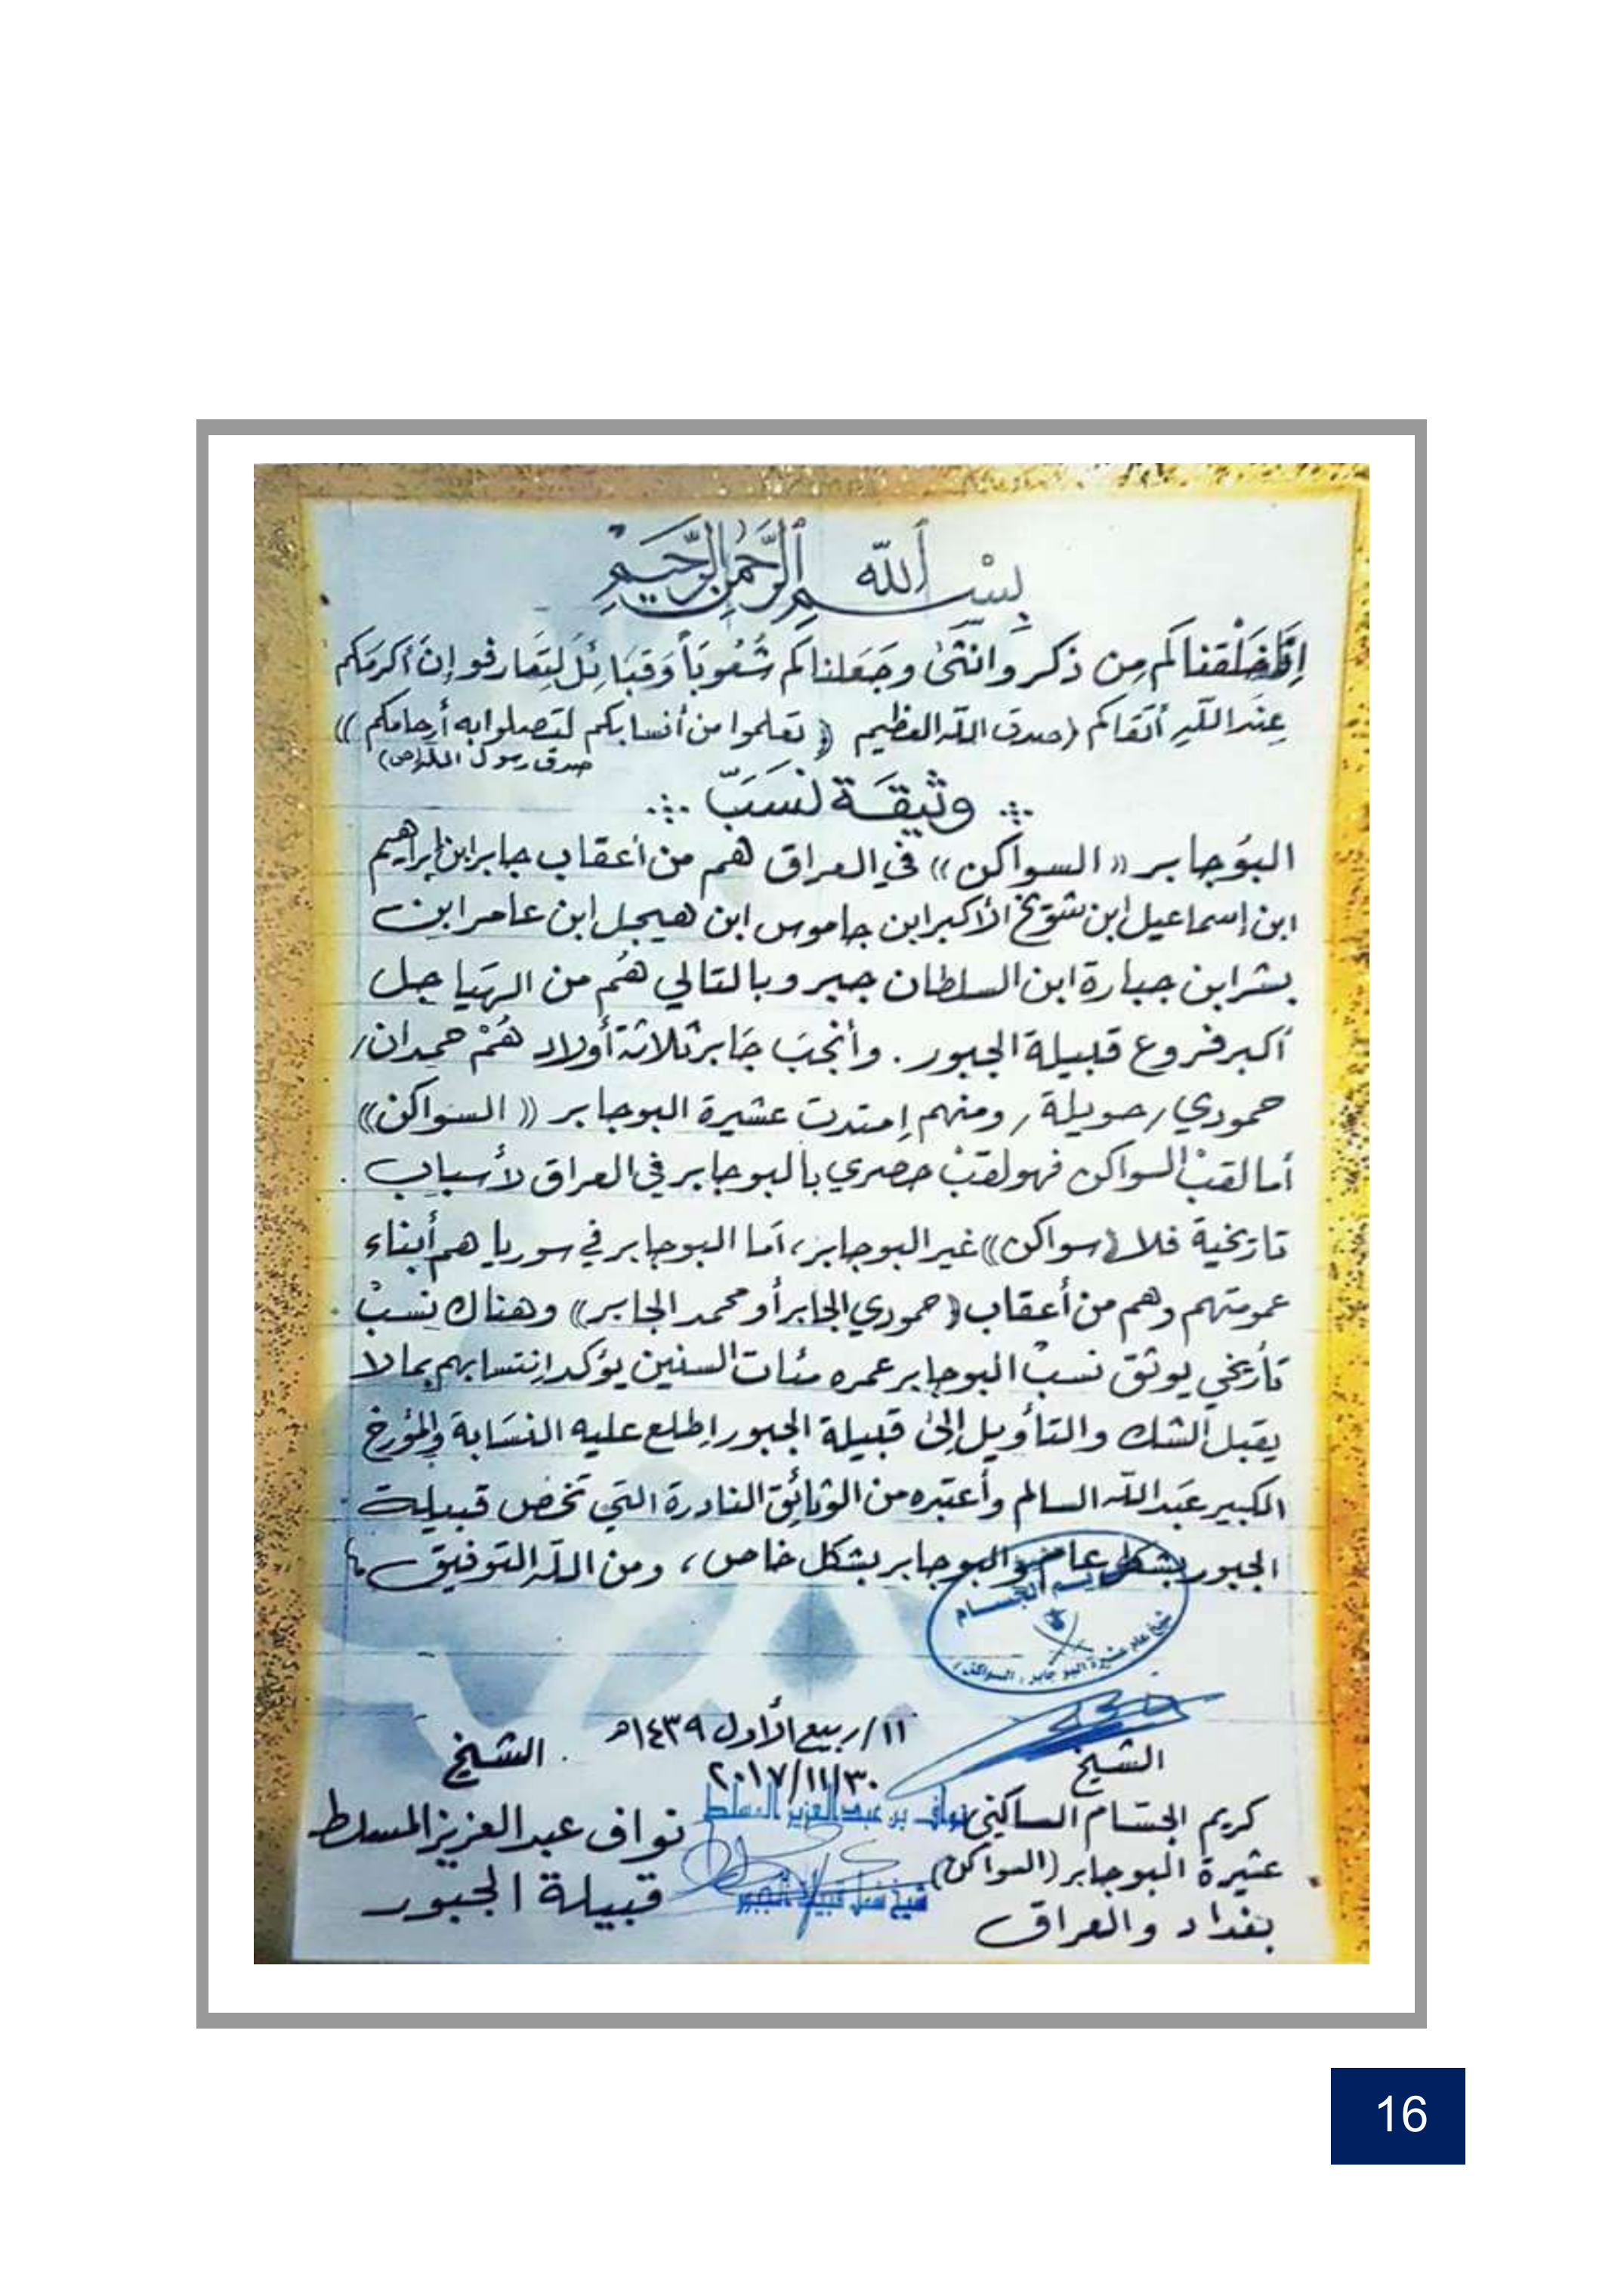 بِسْمِ اللّٰه الرَّحمٰن الرَّحِيم
إِنَّا خَلَقْناكُم مِن ذكر وانثىٰ وجَعَلناكُم شُعُوبَاً وَقبَائِلَ لِتَعَارفو إنَ أكرمَكم
عِندَ اللّٰهِ أتقاكم (صدق اللّٰه العظيم (( تعلموا من أنسابكم لتصلوا به أرحامكم ))
صدق رسول اللّٰه (ص)
وثيقَة نَسَبّ
البوُجابر (( السواكن )) في العراق هم من أعقاب جابر ابن إبراهيم
ابن إسماعيل ابن شويّخ الأكبر ابن جاموس ابن هيجل ابن عامر ابن
بشر ابن جبارة ابن السلطان جبر وبالتالي هُم من الهيَاجل
أكبر فروع قبيلة الجبور . وأنجبَ جَابر ثلاثة أولاد هُمْ حمدان /
حمودي / حويلة / ومنهم إمتدت عشيرة البوجابر (( السواكن ))
أما لقبْ السواكن فهو لقبْ حصري بالبوجابر في العراق لأسباب .
تاريخية فلا (سواكن)) غير البوجابر ، أما البوجابر في سوريا هم أبناء
عمومتهم وهم من أعقاب (( حمودي الجابر أو محمد الجابر )) وهناك نسبْ .
تأريخي يوثق نسبْ البوجابر عمره مئات السنين يؤكد إنتسابهم بما لا
يقبل الشك والتأويل إلىٰ قبيلة الجبور إطلع عليه النسَابة والمؤرخ
الكبير عَبد اللّٰه السالم وأعتبره من الوثائق النادرة التي تخص قبيلة .
الجبور بشكل عام والبوجابر بشكل خاص ، ومن اللّٰه التوفيق
الجسام
شيخ عام عشيرة البو جابر ( السواكن )
١١/ ربيع الأول ١٤٣٩هـ
٢٠١٧/١١/٣٠
الشيخ
كريم الجسّام الساكني
عشيرة البوجابر (السواكن)
بغداد والعراق
نواف بن عبد العزيز المسلط
شيخ شمل قبيلة الجبور
الشيخ
نواف عبد العزيز المسلط
قبيلة الجبور
16